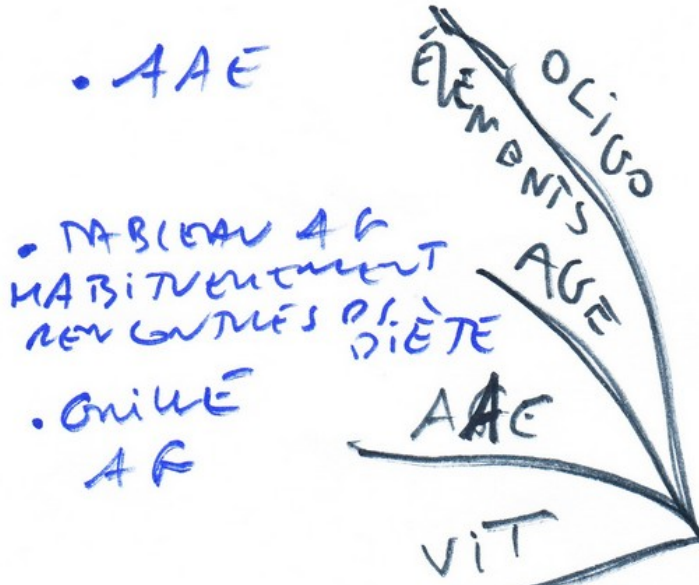 • AAE
• TABLEAU AG
HABITUELLEMENT
RENCONTRÉS DS.
DIÈTE
• GRILLE
AG
OLIGO
ÉLÉMENTS
AGE
AAE
VIT